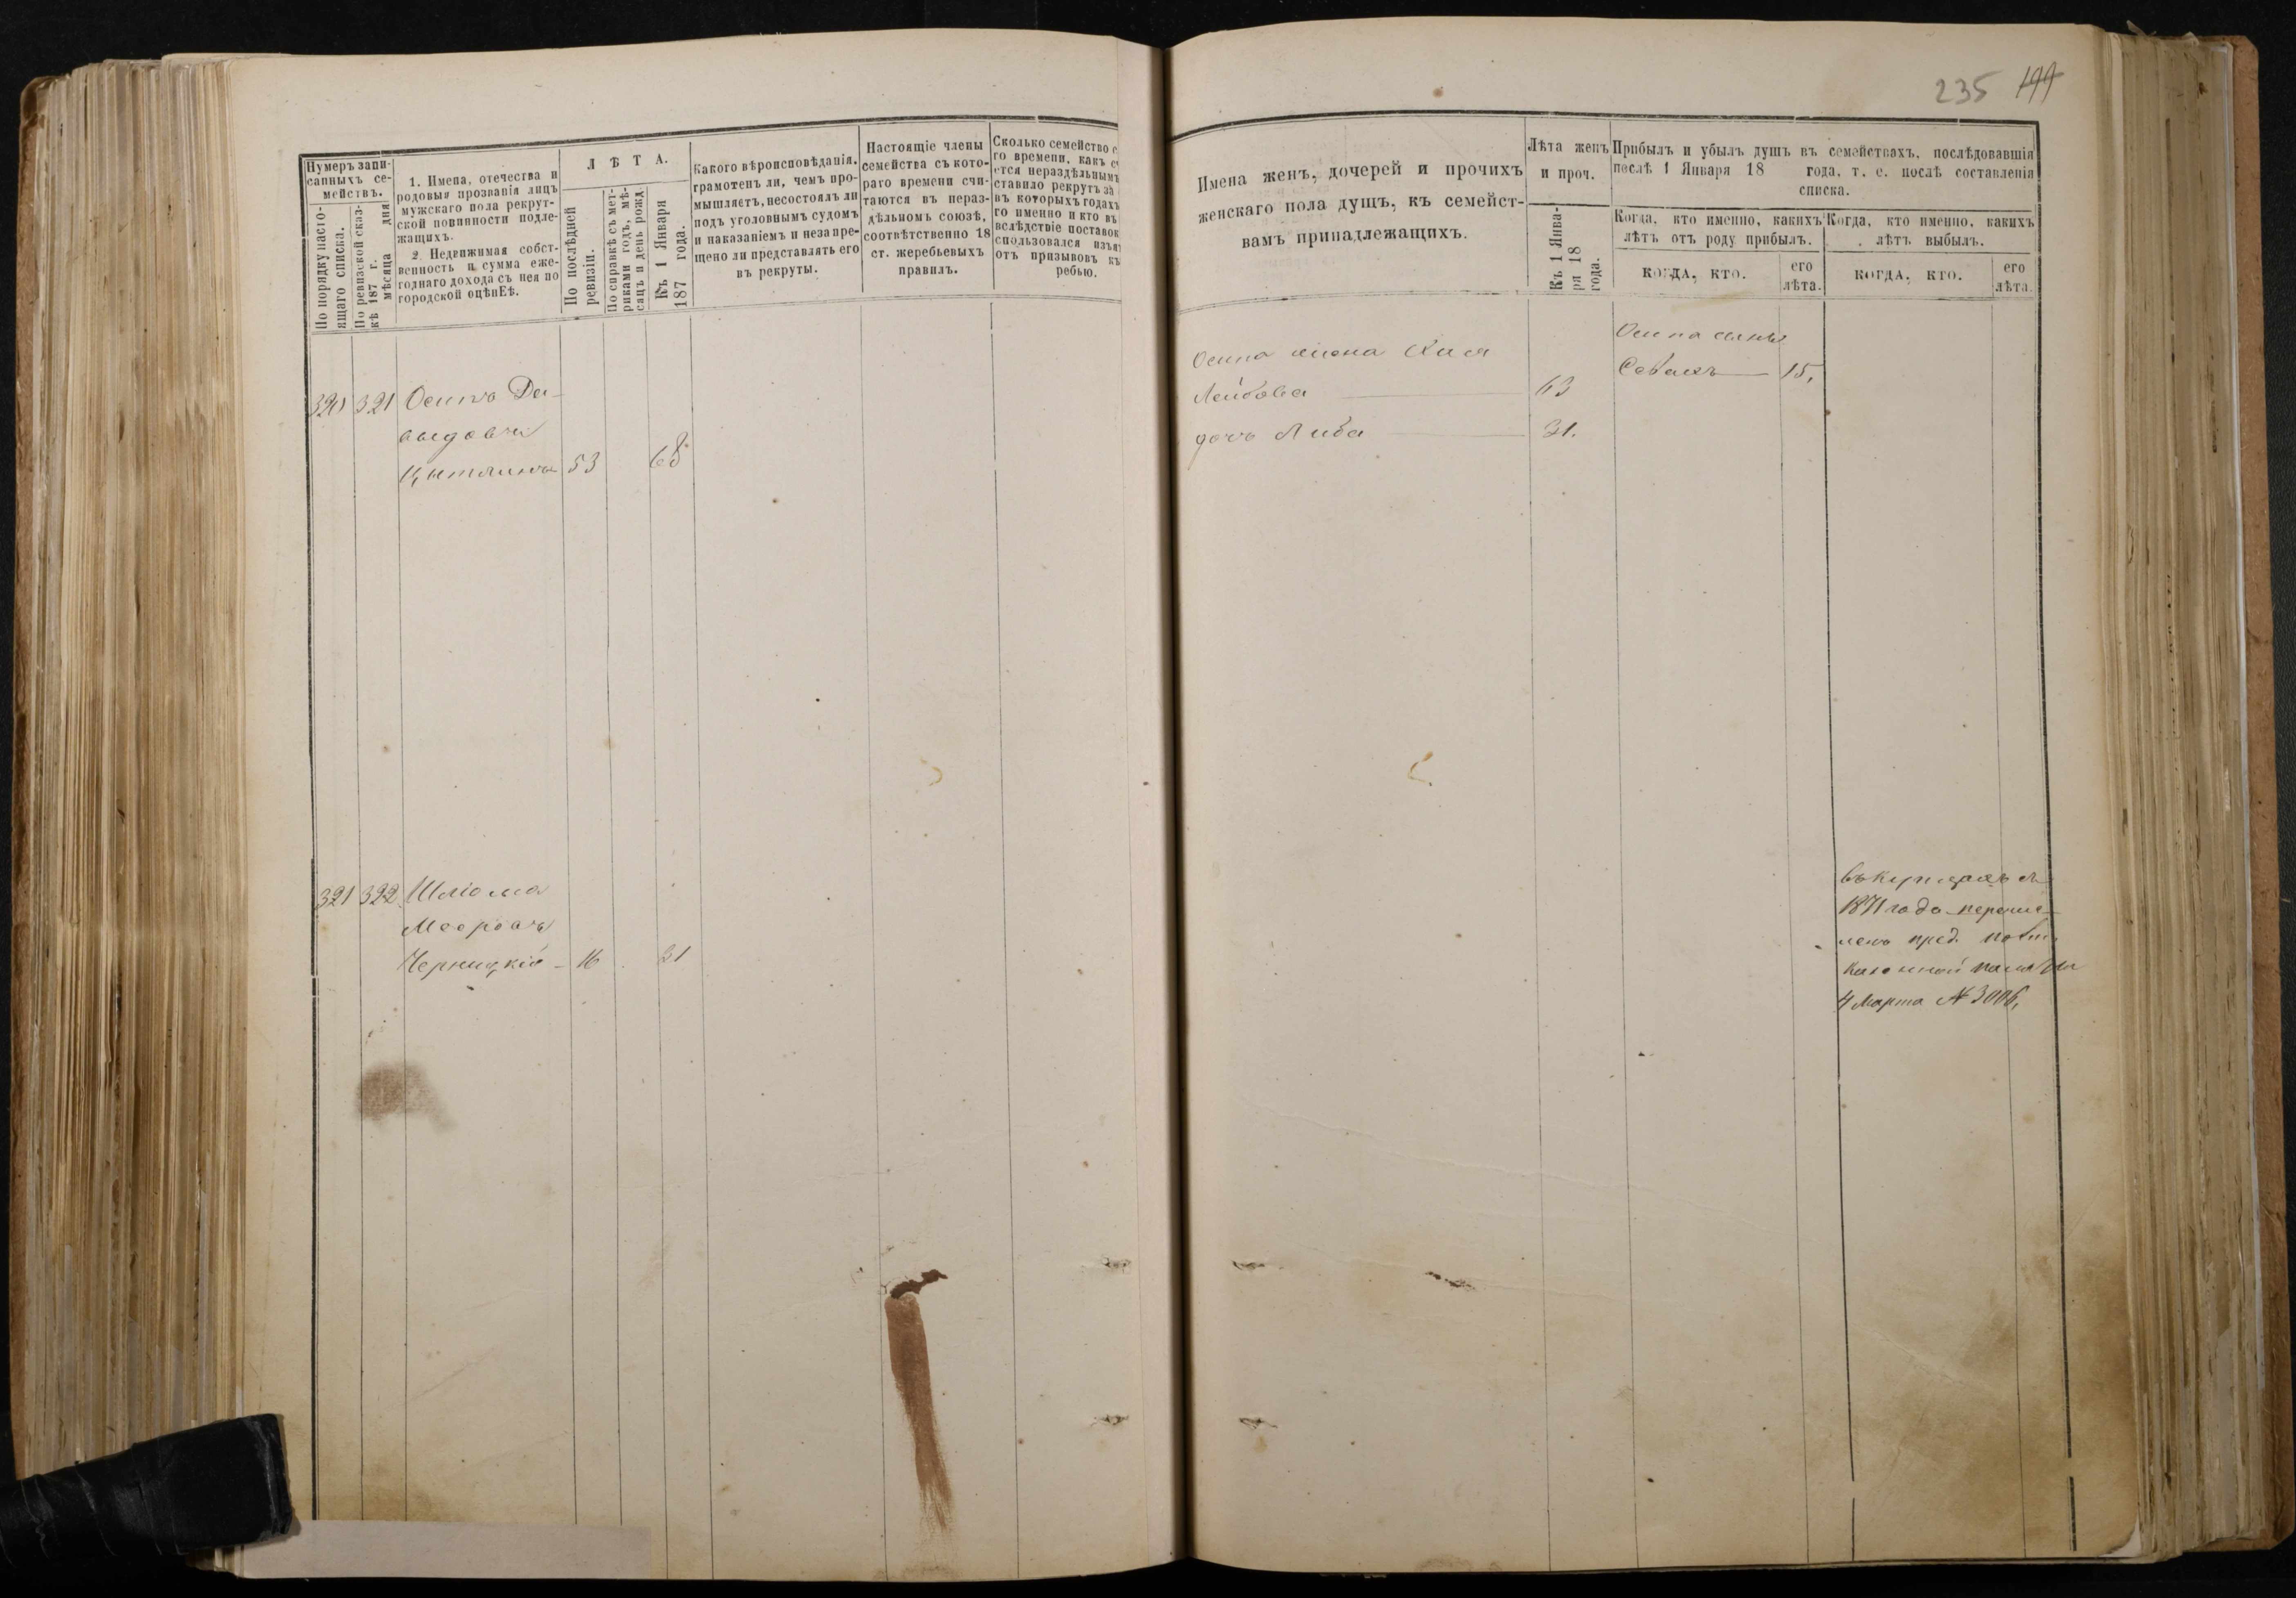 235 144
Нумеръ запи-
санныхъ се-
мействъ.
По порядку насто-
ящаго списка.
По ревизской сказ-
кѣ 187 г.
мѣсяца дня
1. Имена, отечества и
родовыя прозванія лицъ
мужскаго пола рекрут-
ской повинности подле-
жащихъ.
2. Недвижимая собст-
венность и сумма еже-
годнаго дохода съ нея по
городской оцѣнЕѣ.
ЛѢТА.
По послѣдней
ревизіи.
По справкѣ съ мет-
риками годъ, мѣ-
сяцъ и день рожд.
Къ 1 Января
187 года.
Какого вѣроисповѣданія.
грамотенъ ли, чемъ про-
мышляетъ, несостоялъ ли
подъ уголовнымъ судомъ
и наказаніемъ и незапре-
щено ли представлять его
въ рекруты.
Настоящіе члены
семейства съ кото-
раго времени счи-
таются въ нераз-
дѣльномъ союзѣ,
соотвѣтственно 18
ст. жеребьевыхъ
правилъ.
Сколько семейство с
го времени, какъ с
ется нераздѣльнымъ
ставило рекрутъ за
въ которыхъ годахъ
го именно и кто въ
вслѣдствіе поставок
спользовался изъя
отъ призывовъ къ
ребью.
Имена женъ, дочерей и прочихъ
женскаго пола душъ, къ семейст-
вамъ принадлежащихъ.
Лѣта женъ
и проч.
Къ 1 Янва-
ря 18
года.
Прибылъ и убылъ душъ въ семействахъ, послѣдовавшія
послѣ 1 Января 18 года, т. е. послѣ составленія
списка.
Когда, кто именно, какихъ
лѣтъ отъ роду прибылъ.
КОГДА, КТО.
его
лѣта.
Когда, кто именно, какихъ
лѣтъ выбылъ.
КОГДА, КТО.
его
лѣта.
320 321 Осипъ Да-
выдовъ
Цытлинъ 53 68
Осипа жена Хися
Лейбова 63
дочь Либа 31.
Осипа сынъ
15,
321 322 Шліома
Мееровъ
Черницкій 16 31
1871 года перечис-
ленъ пред.
казенной палаты
4 Марта № 3006,